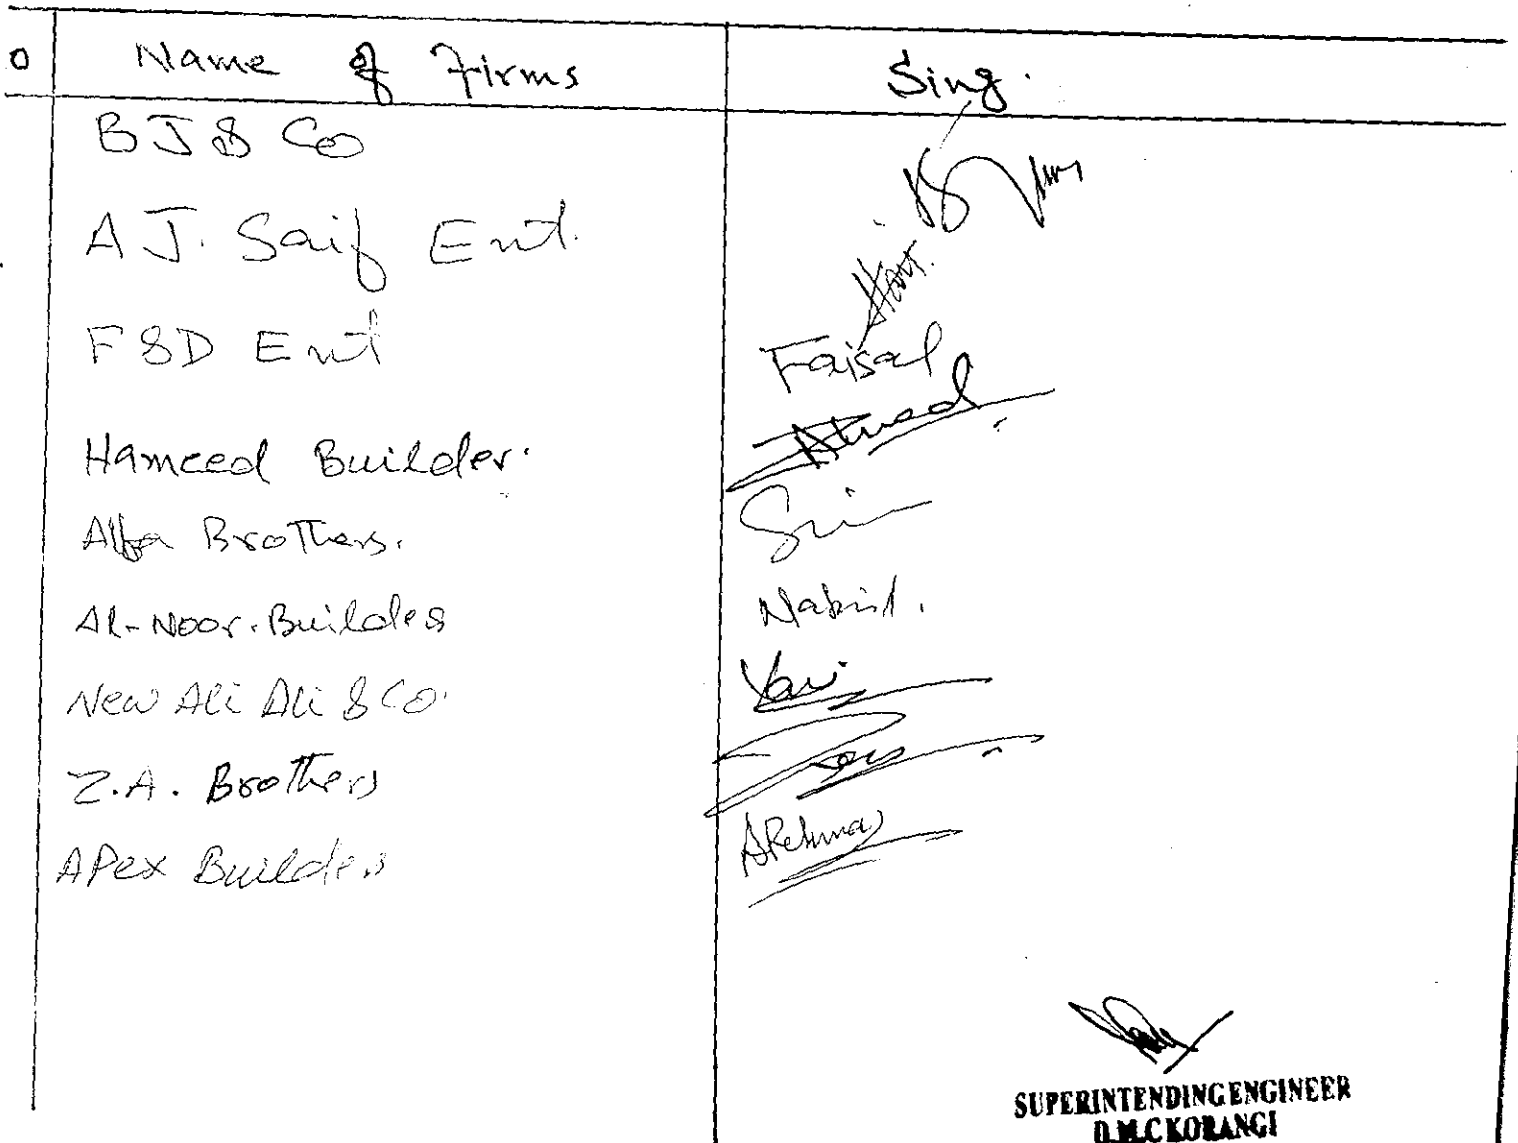 o Name of Firms Sing.
BJ & Co
A J. Saif Ent.
F & D Ent Faisal
Hameed Builder. Ahmed
Alfa Brothers.
Al-Noor. Builders Nabil.
New Ali Ali & Co.
Z.A. Brothers
APex Builders ARehman
SUPERINTENDING ENGINEER
D.M.C KORANGI